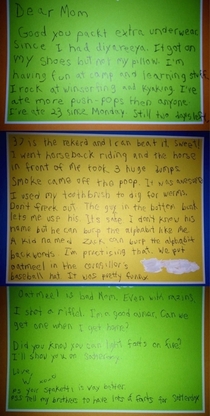 Dear Mom
Good you packt extra underwear
Since I had diyareeya. It got on
my shoes but not my pillow. I'm
having fun at camp and learning stuff.
I rock at winsorring and kyaking. I've
ate more push-pops then anyone
I've ate 23 since Monday. Still two days
is the rekord and I can beat it. Sweet!
I went horseback riding and the horse
in front of me took 3 huge dumps.
Smoke came off the poop. It was awesome
I used my toothbrush to dig for worms.
Dont freek out. The guy in the bottom bunk
lets me use his. Its ok. I don't know his
name but he can burp the alphabet like me.
A kid named Zack can burp the alphabet
backwords. I'm practising that. We put
oatmeel in the
baseball hat. It was pretty funny
Oatmeel is bad Mom. Even with raisins
I shot a riffel. I'm a good aimer. Can we
get one when I get home?
Did you know you can light farts on fire?
I'll show you on Saterday.
Love,
W
PS you spaketti is way better
PSS Tell my brothers to have lots of farts for Saterday